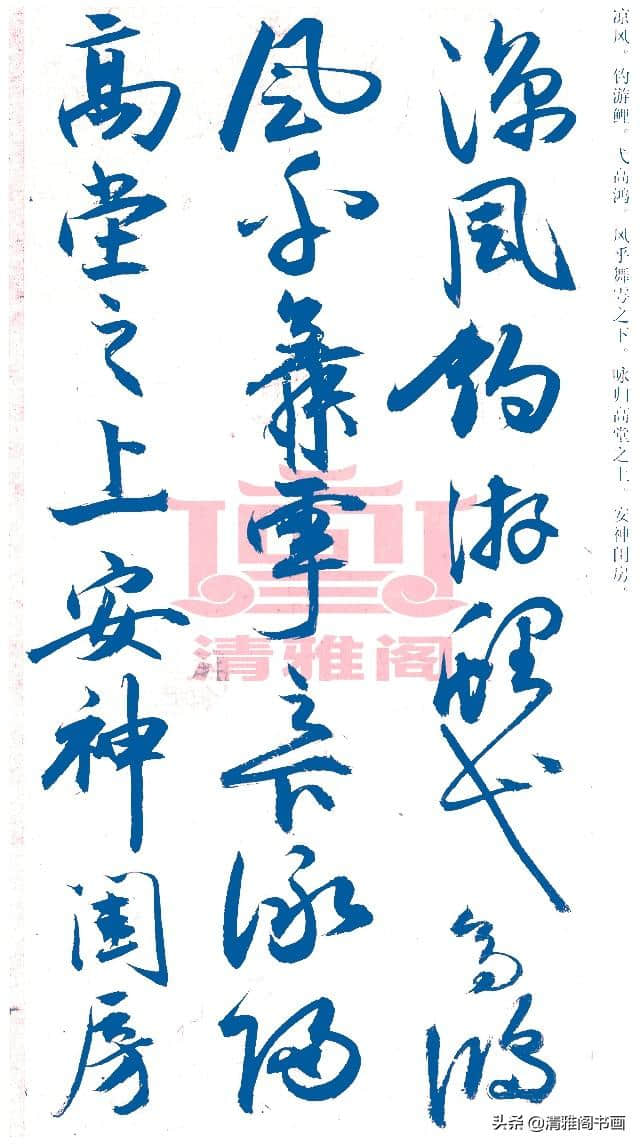 凉风。钓游鲤。弋高鸿。风乎舞雩之下。咏归高堂之上。安神闺房。
涼風釣游鯉弋高鴻
風乎舞雩之下詠歸
高堂之上安神閨房
清雅阁
头条 @清雅阁书画